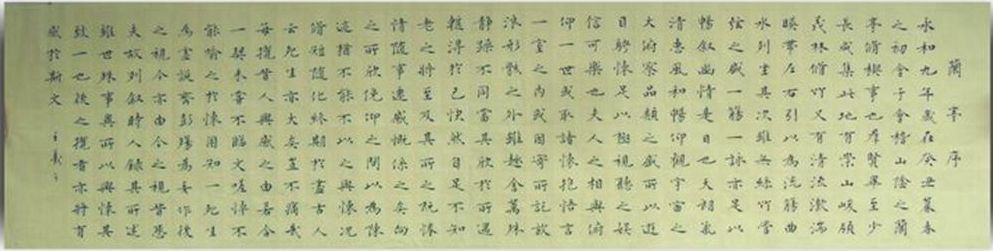 蘭亭序
永和九年歲在癸丑暮春
之初會于會稽山陰之蘭
亭脩禊事也群賢畢至少
長咸集此地有崇山峻領
茂林脩竹又有清流激湍
暎帶左右引以為流觴曲
水列坐其次雖無絲竹管
弦之盛一觴一詠亦足以
暢敘幽情是日也天朗氣
清惠風和暢仰觀宇宙之
大俯察品類之盛所以遊
目騁懷足以極視聽之娛
信可樂也夫人之相與俯
仰一世或取諸懷抱悟言
一室之內或因寄所託放
浪形骸之外雖趣舍萬殊
靜躁不同當其欣於所遇
蹔得於己快然自足不知
老之將至及其所之既惓
情隨事遷感慨係之矣向
之所欣俛仰之間以為陳
迹猶不能不以之興懷況
脩短隨化終期於盡古人
云死生亦大矣豈不痛哉
每攬昔人興感之由若合
一契未嘗不臨文嗟悼不
能喻之於懷固知一死生
為虛誕齊彭殤為妄作後
之視今亦由今之視昔悲
夫故列敘時人錄其所述
雖世殊事異所以興懷其
致一也後之攬者亦將有
感於斯文 王羲之